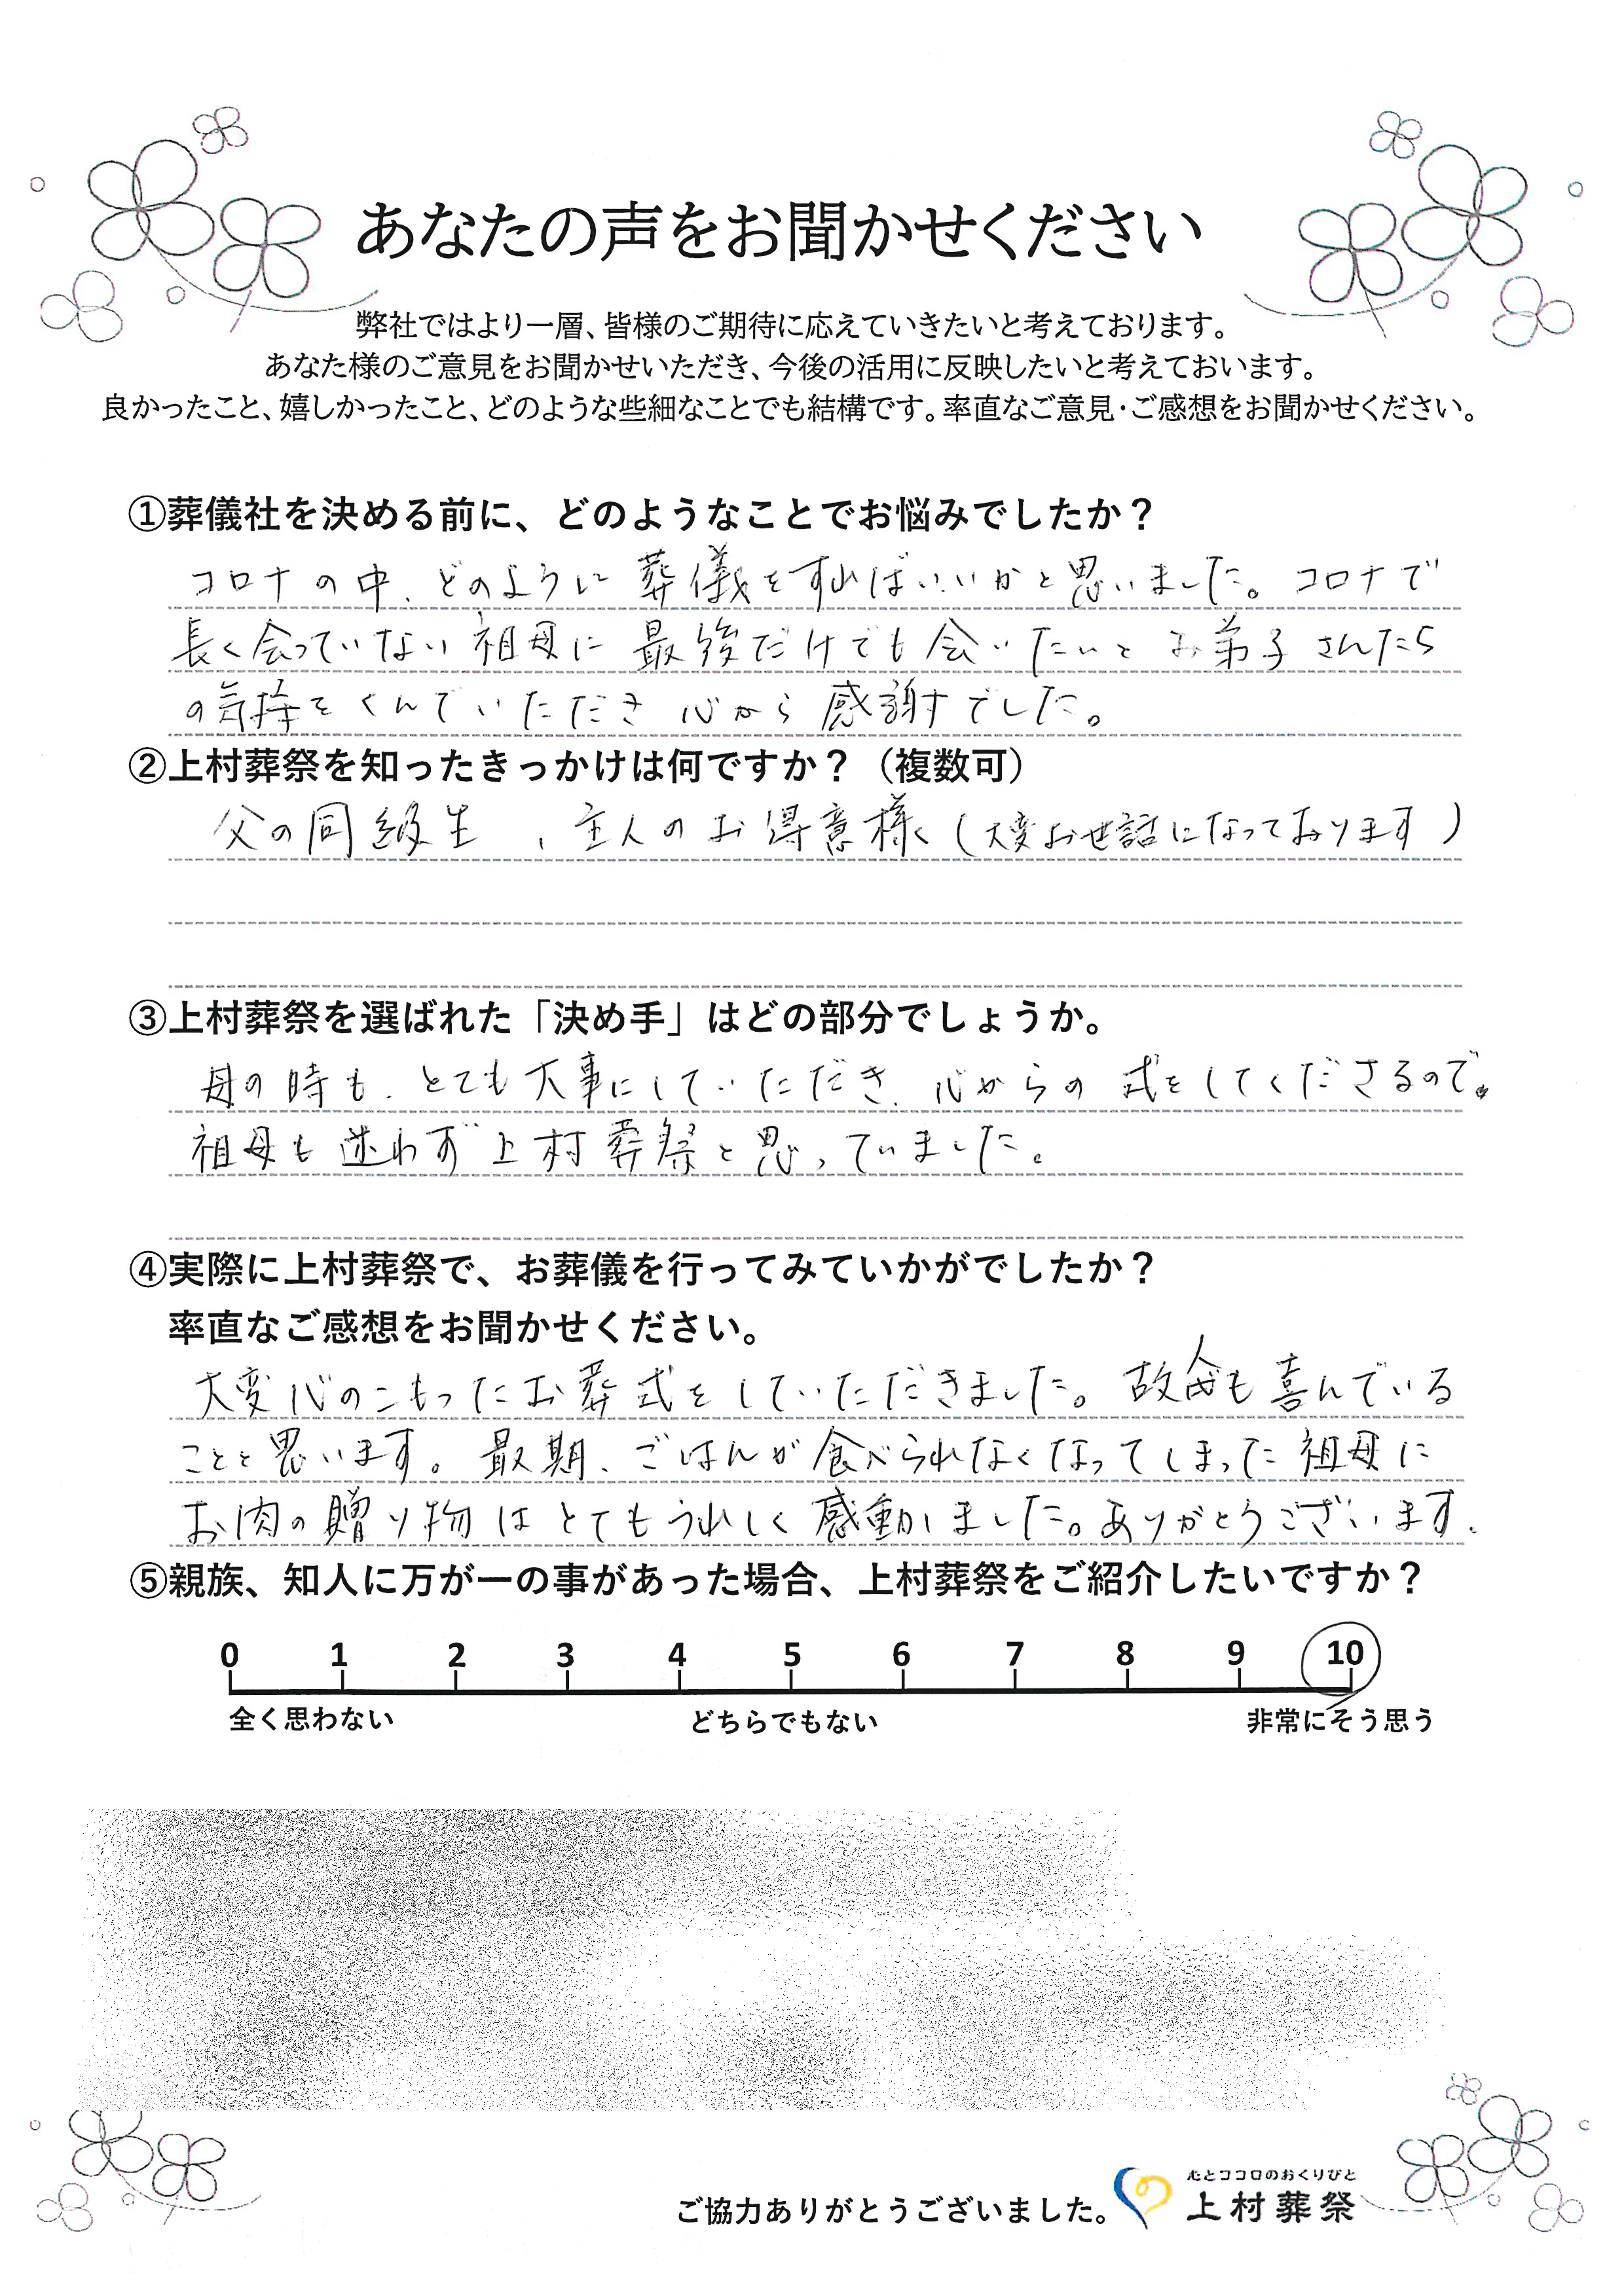 あなたの声をお聞かせください
弊社ではより一層、皆様のご期待に応えていきたいと考えております。
あなた様のご意見をお聞かせいただき、今後の活用に反映したいと考えておいます。
良かったこと、嬉しかったこと、どのような些細なことでも結構です。率直なご意見・ご感想をお聞かせください。
①葬儀社を決める前に、どのようなことでお悩みでしたか？
コロナの中、どのように葬儀をすればいいかと思いました。コロナで
長く会っていない祖母に最後だけでも会いたいとお弟子さんたち
の気持をくんでいただき心から感謝でした。
②上村葬祭を知ったきっかけは何ですか？（複数可）
父の同級生、主人のお得意様（大変お世話になっております）
③上村葬祭を選ばれた「決め手」はどの部分でしょうか。
母の時も、とても大事にしていただき、心からの式をしてくださるので。
祖母も迷わず上村葬祭と思っていました。
④実際に上村葬祭で、お葬儀を行ってみていかがでしたか？
率直なご感想をお聞かせください。
大変心のこもったお葬式をしていただきました。故人も喜んでいる
ことと思います。最期、ごはんが食べられなくなってしまった祖母に
お肉の贈り物はとてもうれしく感動しました。ありがとうございます。
⑤親族、知人に万が一の事があった場合、上村葬祭をご紹介したいですか？
0 1 2 3 4 5 6 7 8 9 10
全く思わない どちらでもない 非常にそう思う
心とココロのおくりびと
ご協力ありがとうございました。 上村葬祭